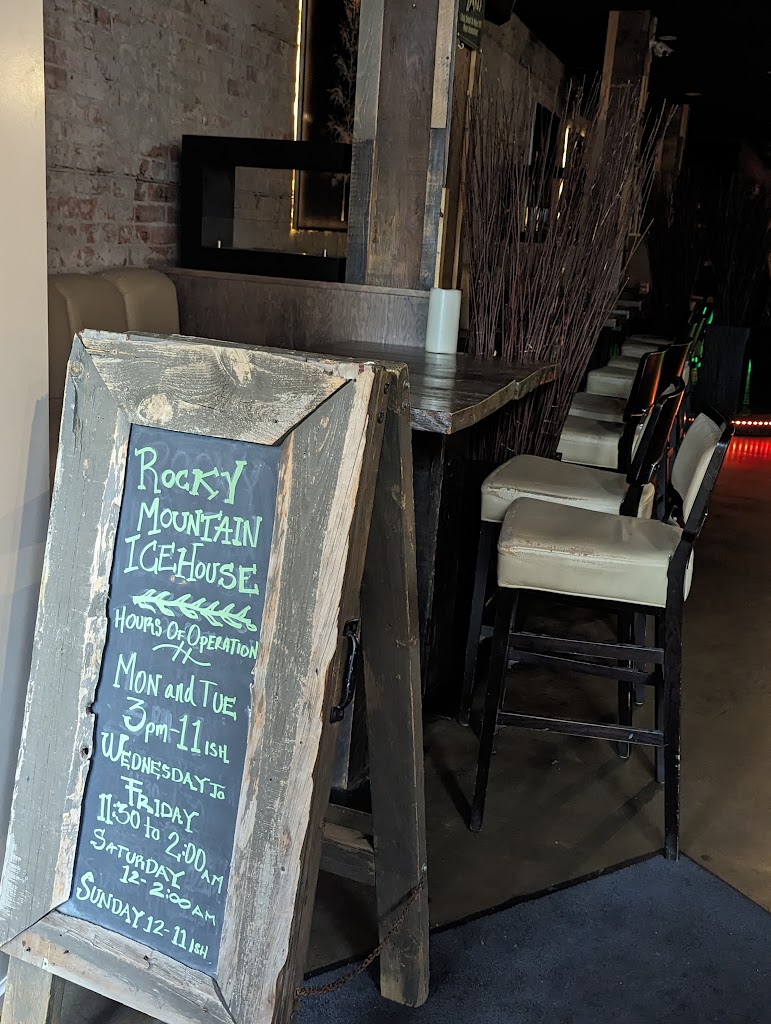 ROCKY
MOUNTAIN
ICEHOUSE
HOURS OF OPERATION
MON and TUE
3pm-11 ISH
WEDNESDAY TO
FRIDAY
11:30 to 2:00 AM
SATURDAY
12-2:00 AM
SUNDAY 12-11 ISH